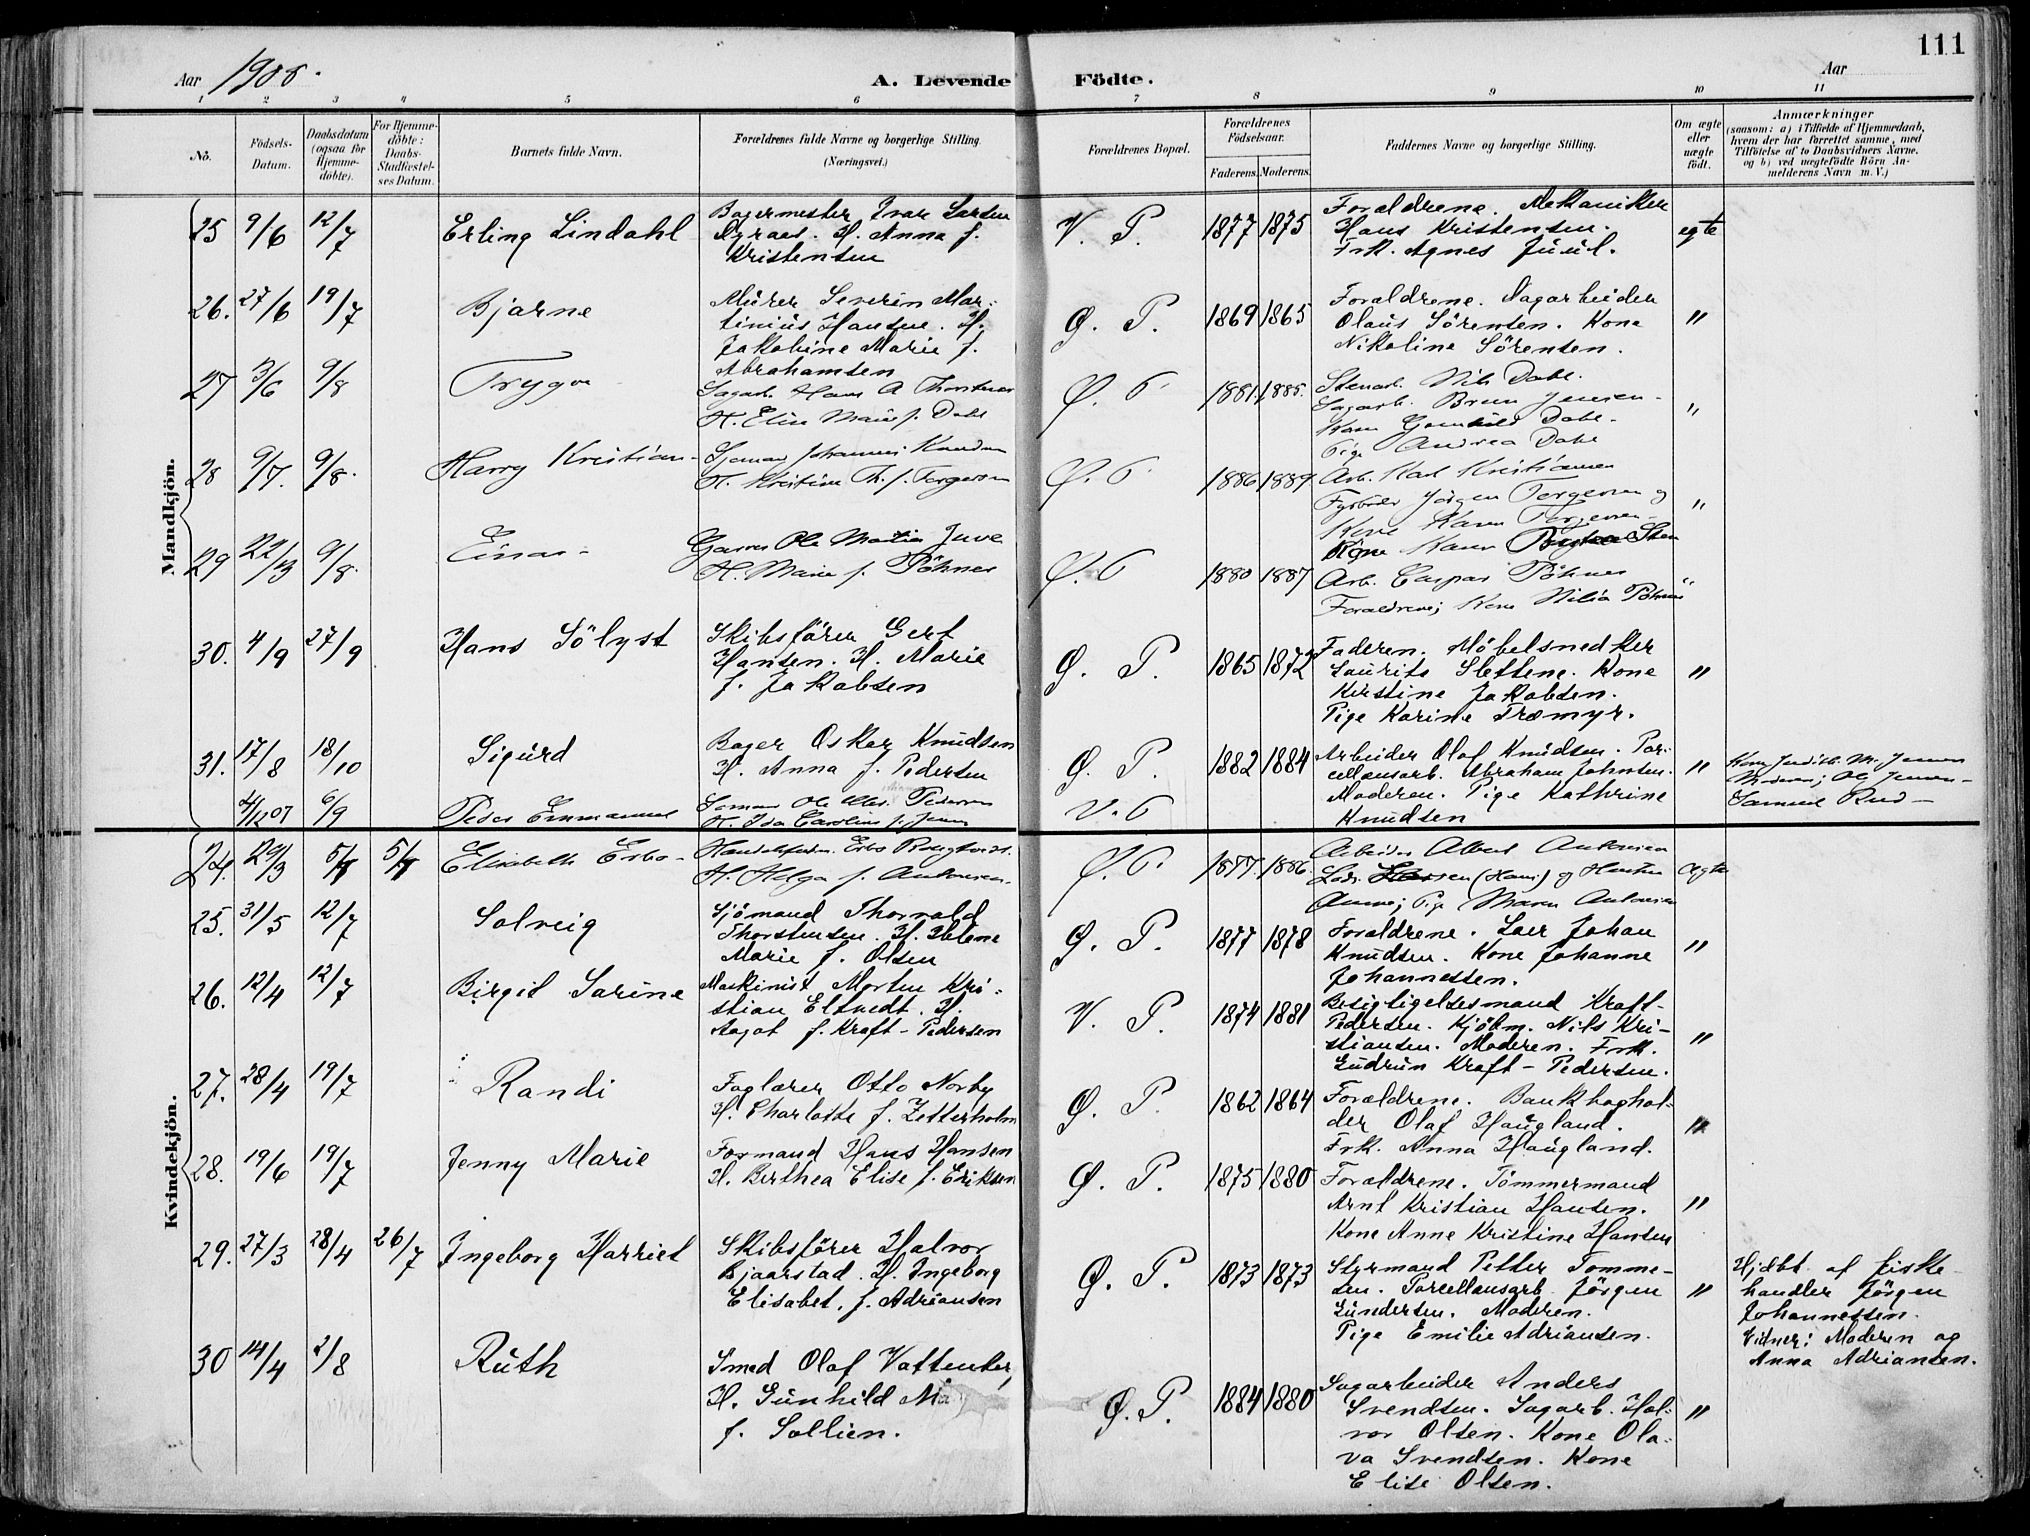 111
Aar 1908.
A. Levende Födte.
Aar
1 2 3 4 5 6 7 8 9 10 11
No.
Födsels-
Datum.
Daabsdatum
(ogsaa for
Hjemme-
döbte).
For Hjemme-
döbte:
Daabs-
Stadfæstel-
ses Datum.
Barnets fulde Navn.
Forældrenes fulde Navne og borgerlige Stilling.
(Næringsvei.)
Forældrenes Bopæl.
Forældrenes
Födselsaar.
Faderens. Moderens.
Faddernes Navne og borgerlige Stilling.
Om ægte
eller
uægte
födt.
Anmærkninger
(saasom: a) i Tilfælde af Hjemmedaab,
hvem der har forrettet samme, med
Tilföielse af to Daabsvidners Navne.
og b) ved uegtefödte Börn An-
melderens Navn m.V.)
Mandkjön.
25 9/6 12/7 Erling Lindahl
Bagermester Ivar Larsen
. H. Anna f.
Kristensen
V. P. 1877 1875
Foraldrene. Mekaniker
Hans Kristensen.
Frk. Agnes Juul.
egte
26. 27/6 19/7 Bjarne
Murer Severin Mar-
tinius Hansen. H.
Jakobine Marie f.
Abrahamsen
Ø. P. 1869 1865
Foraldrene. Sagarbeider
Olaus Sörensen. Kone
Nikoline Sörensen.
"
27 3/6 9/8 Trygve
Sagarb. Hans A
H. Elin Marie f. Dahl
Ø. P 1881 1885.
Stenarb. Nils Dahl.
Sagarb. Brun Jensen -
Kone Gunhild Dahl.
Pige Andrea Dahl
"
28 9/7. 9/8. Harry Kristian -
Sjömand Johannes Knudsen
H. Kristine Th. f. Torgersen
Ø. P 1886 1889
Arb. Karl Kristiansen
Fyrböder Jörgen Torgersen og
Kone Karen Torgersen -
"
29 22/3 9/8. Einar -
Garver Ole Martin Juve
H. Marie f. Pöhner
Ø. P 1880 1887
Arb. Caspar Pöhner
Foraldrene; Kone Pöhner
"
30. 4/9 27/9 Hans Sölyst
Skibsförer Gert
Hansen. H. Marie
f. Jakobsen
Ø. P. 1865 1872
Faderen. Möbelsnedker
Laurits Slettene. Kone
Kirstine Jakobsen.
Pige Karine Træmyr.
"
31. 17/8 18/10 Sigurd
Bager Oskar Knudsen
H. Anna f. Pedersen
Ø. P. 1882 1884
Arbeider Olaf Knudsen. Por-
cellænsarb. Abraham Johnsen.
Moderen. Pige Kathrine
Knudsen
"
4/12 07 6/9 Peder Emmanuel
Sömand Ole Pedersen
H. Ida Caroline f. Jensen
V. P
Kone M. Jensen
Moderen; Ole Jensen -
Samuel Rud -
Kvindekjön.
24. 29/3 5/7 5/7 Elisabeth Erbo -
Erbo
H. Helga f. Antonsen.
Ø. P. 1877. 1886.
Arbeider Albert Antonsen
(Hans) og Hustru
Anne; Pige Maren Antonsen
Ægte
25. 31/5 12/7 Solveig
Sjömand Thorvald
Thorstensen. H. Helene
Marie f. Olsen
Ø. P. 1877 1878
Foraldrene. Loer Johan
Knudsen. Kone Johanne
Johannessen.
"
26. 12/4 12/7 Birgit Sarine
Maskinist Morten Kri-
stian Eltvedt. H.
Aagot f. Kraft-Pedersen
V. P. 1874 1881
Besigtigelsesmand Kraft-
Pedersen. Kjöbm. Nils Kri-
stiansen. Moderen. Frk.
Gudrun Kraft-Pedersen.
"
27. 28/4 19/7 Randi
Faglærer Otto Norby
H. Charlotte f. Zetterholm
Ø. P. 1862 1864
Forældrene. Bankboghol-
der Olaf Haugland.
Frk. Anna Haugland.
"
28. 19/6 19/7 Jenny Marie
Formand Hans Hansen
H. Berthea Elise f. Eriksen
Ø. P. 1875 1880
Forældrene. Tömmermand
Arnt Kristian Hansen.
Kone Anne Kristine Hansen
"
29. 27/3 28/4 26/7 Ingeborg Harriet
Skibsförer Halvor
Bjaarstad. H. Ingeborg
Elisabet. f. Adriansen
Ø. P. 1873 1873
Styrmand Petter Tomme-
sen. Porcellænsarb. Jörgen
Gundersen. Moderen.
Pige Emilie Adriansen.
"
Hjdbt. af Fiske
handler Jörgen
Johannessen.
Vidner: Moderen og
Anna Adriansen.
30 14/4 2/8 Ruth
Smed Olaf Vattenber
H. Gunhild
f. Sollien.
Ø. P. 1884 1880
Sagarbeider Anders
Svendsen. Sagarb. Hal-
vor Olsen. Kone Ola-
va Svendsen. Kone
Elise Olsen.
"